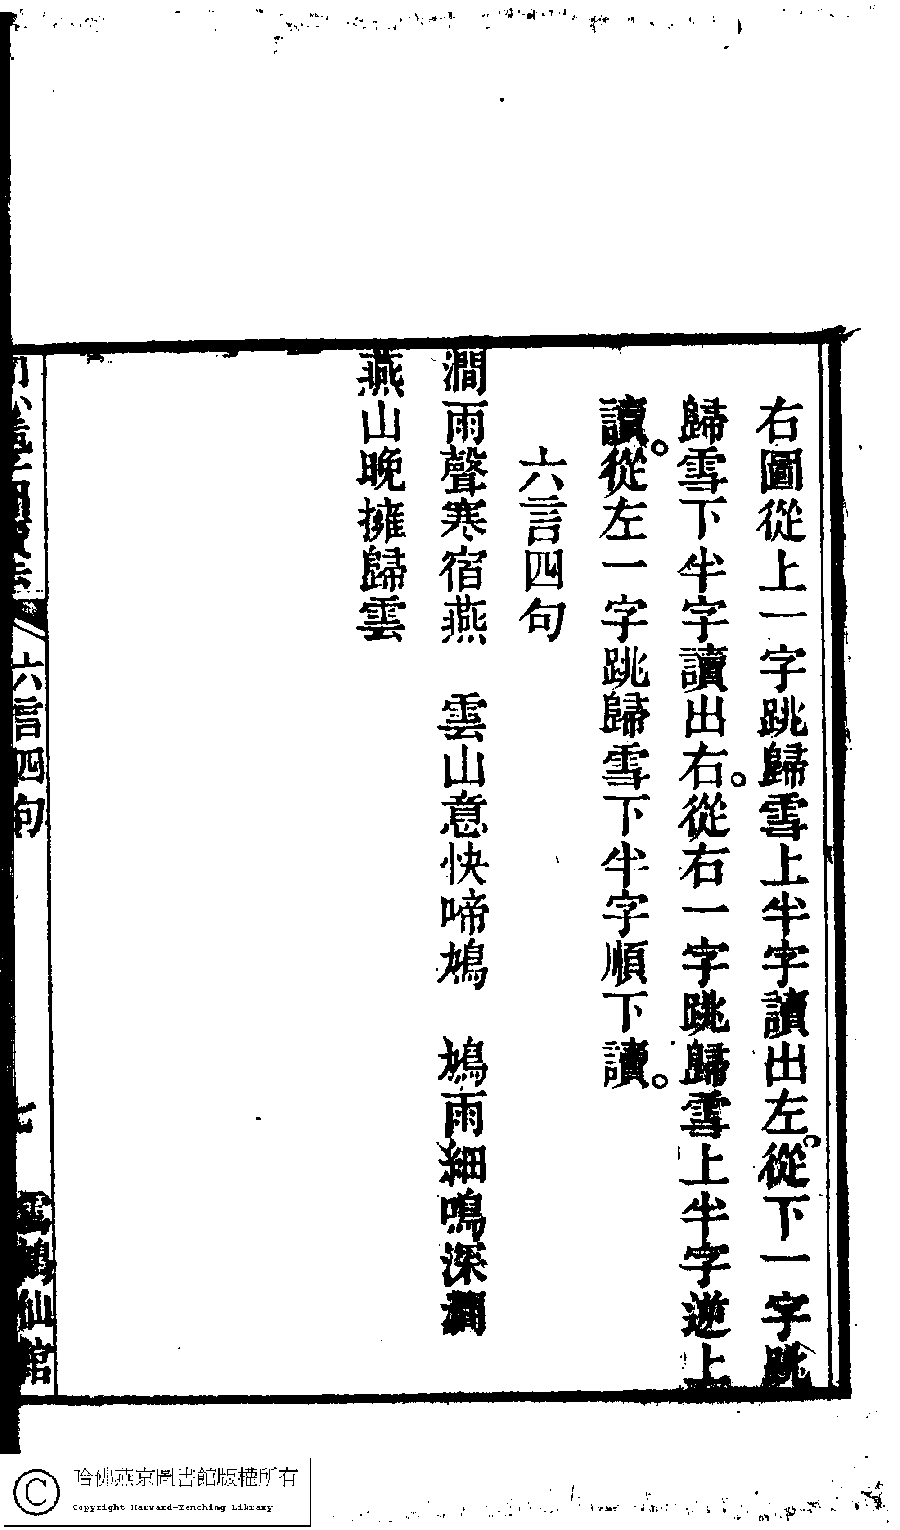 右圖從上一字跳歸雪上半字讀出左。從下一字跳
歸雪下半字讀出右。從右一字跳歸雪上半字逆上
讀。從左一字跳歸雪下半字順下讀。
六言四句
澗雨聲寒宿燕　雲山意快啼鳩　鳩雨細鳴深澗
燕山晚擁歸雲
六言四句
七
鶴仙館
哈佛燕京圖書館版權所有
Copyright Harvard-Yenching Library